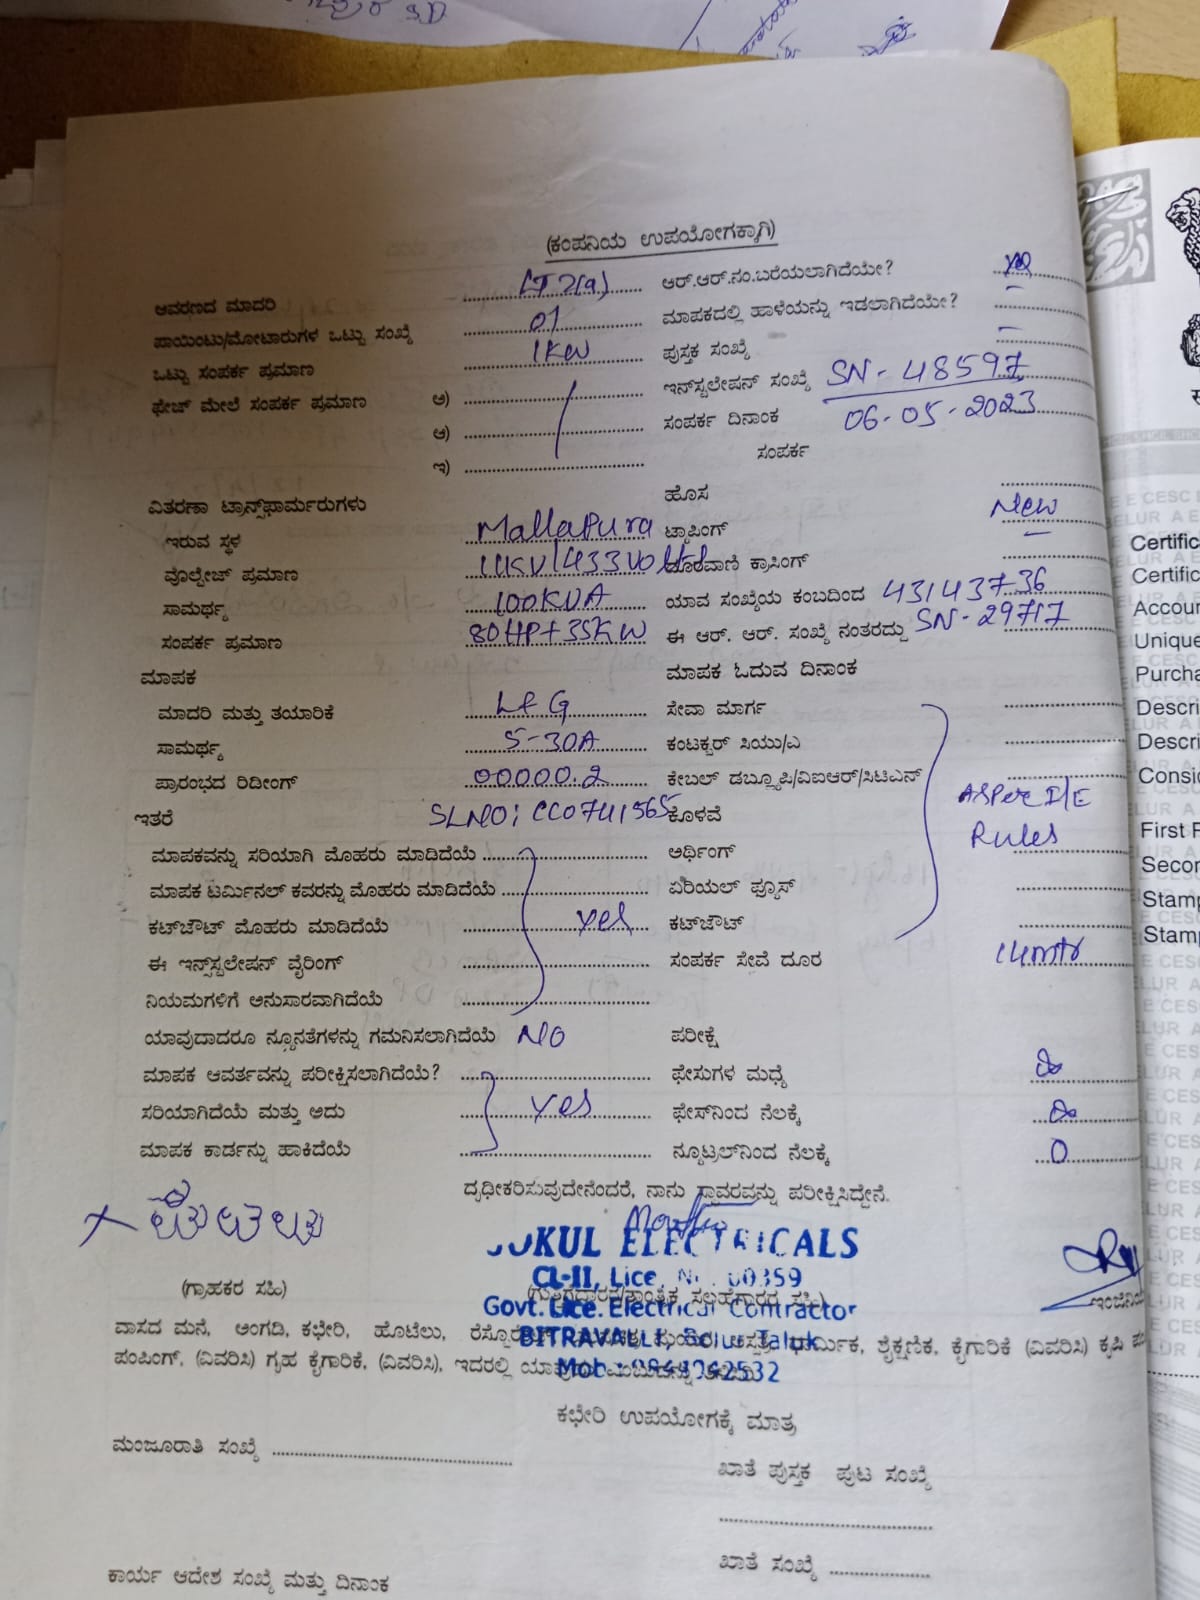 (ಕಂಪನಿಯ ಉಪಯೋಗಕ್ಕಾಗಿ)
ಆವರಣದ ಮಾದರಿ LT 2(a) ಆರ್.ಆರ್.ನಂ.ಬರೆಯಲಾಗಿದೆಯೇ?
ಪಾಯಿಂಟು/ಮೋಟಾರುಗಳ ಒಟ್ಟು ಸಂಖ್ಯೆ 01 ಮಾಪಕದಲ್ಲಿ ಹಾಳೆಯನ್ನು ಇಡಲಾಗಿದೆಯೇ? –
ಒಟ್ಟು ಸಂಪರ್ಕ ಪ್ರಮಾಣ 1KW ಪುಸ್ತಕ ಸಂಖ್ಯೆ –
ಫೇಜ್ ಮೇಲೆ ಸಂಪರ್ಕ ಪ್ರಮಾಣ ಅ) ಇನ್‌ಸ್ಟಲೇಷನ್ ಸಂಖ್ಯೆ SN-48597
ಆ) ಸಂಪರ್ಕ ದಿನಾಂಕ 06-05-2023
ಇ) ಸಂಪರ್ಕ
ವಿತರಣಾ ಟ್ರಾನ್ಸ್‌ಫಾರ್ಮರುಗಳು ಹೊಸ New
ಇರುವ ಸ್ಥಳ Mallapura ಟ್ಯಾಪಿಂಗ್ –
ವೊಲ್ಟೇಜ್ ಪ್ರಮಾಣ 11KV/433Volts ದೂರವಾಣಿ ಕ್ರಾಸಿಂಗ್
ಸಾಮರ್ಥ್ಯ 100KVA ಯಾವ ಸಂಖ್ಯೆಯ ಕಂಬದಿಂದ 43143736
ಸಂಪರ್ಕ ಪ್ರಮಾಣ 80HP+35KW ಈ ಆರ್. ಆರ್. ಸಂಖ್ಯೆ ನಂತರದ್ದು SN-29717
ಮಾಪಕ ಮಾಪಕ ಓದುವ ದಿನಾಂಕ
ಮಾದರಿ ಮತ್ತು ತಯಾರಿಕೆ L&G ಸೇವಾ ಮಾರ್ಗ
ಸಾಮರ್ಥ್ಯ 5-30A ಕಂಟಕ್ಟರ್ ಸಿಯು/ಎ
ಪ್ರಾರಂಭದ ರಿಡೀಂಗ್ 00000.2 ಕೇಬಲ್ ಡಬ್ಲ್ಯೂಪಿ/ವಿಐಆರ್/ಸಿಟಿಎನ್
ಇತರೆ SLNO: CC0741565 ಕೊಳವೆ As Per I/E Rules
ಮಾಪಕವನ್ನು ಸರಿಯಾಗಿ ಮೊಹರು ಮಾಡಿದೆಯೆ ಅರ್ಥಿಂಗ್
ಮಾಪಕ ಟರ್ಮಿನಲ್ ಕವರನ್ನು ಮೊಹರು ಮಾಡಿದೆಯೆ ಏರಿಯಲ್ ಫ್ಯೂಸ್
ಕಟ್‌ಔಟ್ ಮೊಹರು ಮಾಡಿದೆಯೆ yes ಕಟ್‌ಔಟ್
ಈ ಇನ್ಸ್‌ಸ್ಟಲೇಷನ್ ವೈರಿಂಗ್ ಸಂಪರ್ಕ ಸೇವೆ ದೂರ 14mtr
ನಿಯಮಗಳಿಗೆ ಅನುಸಾರವಾಗಿದೆಯೆ
ಯಾವುದಾದರೂ ನ್ಯೂನತೆಗಳನ್ನು ಗಮನಿಸಲಾಗಿದೆಯೆ NO ಪರೀಕ್ಷೆ
ಮಾಪಕ ಆವರ್ತವನ್ನು ಪರೀಕ್ಷಿಸಲಾಗಿದೆಯೆ? ಫೇಸುಗಳ ಮಧ್ಯೆ ∞
ಸರಿಯಾಗಿದೆಯೆ ಮತ್ತು ಅದು yes ಫೇಸ್‌ನಿಂದ ನೆಲಕ್ಕೆ ∞
ಮಾಪಕ ಕಾರ್ಡನ್ನು ಹಾಕಿದೆಯೆ ನ್ಯೂಟ್ರಲ್‌ನಿಂದ ನೆಲಕ್ಕೆ 0
ದೃಢೀಕರಿಸುವುದೇನೆಂದರೆ, ನಾನು ಸ್ಥಾವರವನ್ನು ಪರೀಕ್ಷಿಸಿದ್ದೇನೆ.
ELECTRICALS
(ಗ್ರಾಹಕರ ಸಹಿ) CL-II, Lice. 00359
Govt. Lice. Electrical Contractor
ವಾಸದ ಮನೆ, ಅಂಗಡಿ, ಕಛೇರಿ, ಹೊಟೆಲು, ಧಾರ್ಮಿಕ, ಶೈಕ್ಷಣಿಕ, ಕೈಗಾರಿಕೆ (ವಿವರಿಸಿ) ಕೃಷಿ
BITRAVALLI, Belur Taluk
ಪಂಪಿಂಗ್, (ವಿವರಿಸಿ) ಗೃಹ ಕೈಗಾರಿಕೆ, (ವಿವರಿಸಿ), ಇದರಲ್ಲಿ
Mob:
ಕಛೇರಿ ಉಪಯೋಗಕ್ಕೆ ಮಾತ್ರ
ಮಂಜೂರಾತಿ ಸಂಖ್ಯೆ
ಖಾತೆ ಪುಸ್ತಕ ಪುಟ ಸಂಖ್ಯೆ
ಖಾತೆ ಸಂಖ್ಯೆ
ಕಾರ್ಯ ಆದೇಶ ಸಂಖ್ಯೆ ಮತ್ತು ದಿನಾಂಕ
Unique
First